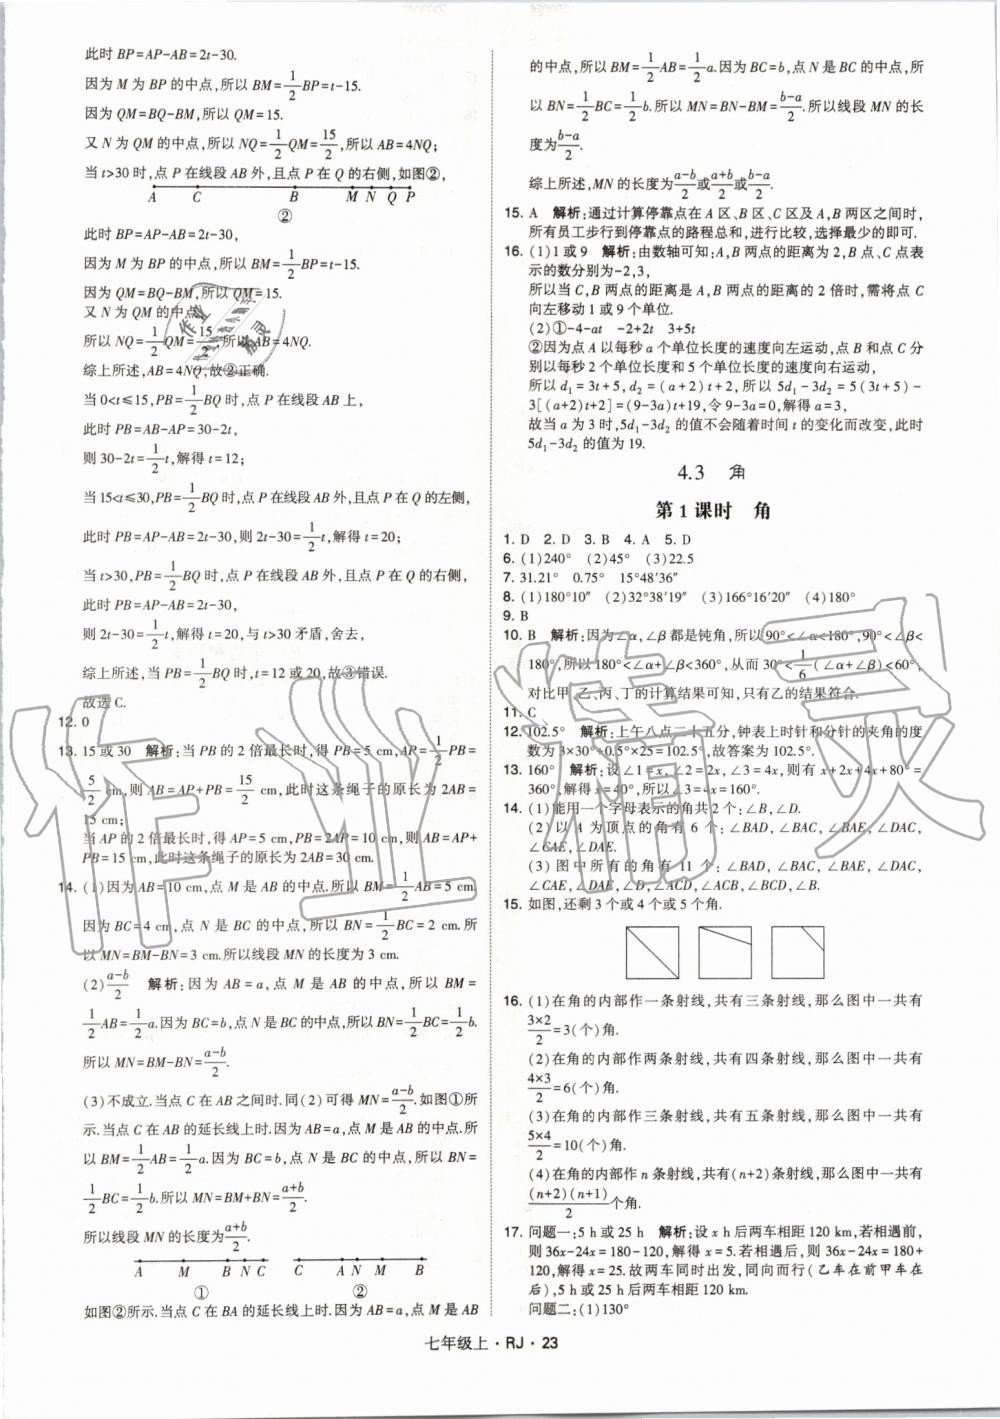 此时 BP=AP-AB=2t-30.
因为 M 为 BP 的中点,所以 BM=1/2BP=t-15.
因为 QM=BQ-BM,所以 QM=15.
又 N 为 QM 的中点,所以 NQ=1/2QM=15/2,所以 AB=4NQ;
当 t>30 时,点 P 在线段 AB 外,且点 P 在 Q 的右侧,如图②,
A C B M N Q P
②
此时 BP=AP-AB=2t-30,
因为 M 为 BP 的中点,所以 BM=1/2BP=t-15.
因为 QM=BQ-BM,所以 QM=15.
又 N 为 QM 的中点,
所以 NQ=1/2QM=15/2,所以 AB=4NQ.
综上所述,AB=4NQ,故②正确.
当 0<t≤15,PB=1/2BQ 时,点 P 在线段 AB 上,
此时 PB=AB-AP=30-2t,
则 30-2t=1/2t,解得 t=12;
当 15<t≤30,PB=1/2BQ 时,点 P 在线段 AB 外,且点 P 在 Q 的左侧,
此时 PB=AP-AB=2t-30,则 2t-30=1/2t,解得 t=20;
当 t>30,PB=1/2BQ 时,点 P 在线段 AB 外,且点 P 在 Q 的右侧,
此时 PB=AP-AB=2t-30,
则 2t-30=1/2t,解得 t=20,与 t>30 矛盾,舍去,
综上所述,当 PB=1/2BQ 时,t=12 或 20,故③错误.
故选 C.
12. 0
13. 15 或 30 解析:当 PB 的 2 倍最长时,得 PB=5 cm,AP=1/2PB=
5/2 cm,则 AB=AP+PB=15/2 cm,此时这条绳子的原长为 2AB=
15 cm;
当 AP 的 2 倍最长时,得 AP=5 cm,PB=2AP=10 cm,则 AB=AP+
PB=15 cm,此时这条绳子的原长为 2AB=30 cm.
14. (1)因为 AB=10 cm,点 M 是 AB 的中点,所以 BM=1/2AB=5 cm.
因为 BC=4 cm,点 N 是 BC 的中点,所以 BN=1/2BC=2 cm.所
以 MN=BM-BN=3 cm.所以线段 MN 的长度为 3 cm.
(2)(a-b)/2 解析:因为 AB=a,点 M 是 AB 的中点,所以 BM=
1/2AB=1/2a.因为 BC=b,点 N 是 BC 的中点,所以 BN=1/2BC=1/2b.
所以 MN=BM-BN=(a-b)/2.
(3)不成立.当点 C 在 AB 之间时.同(2)可得 MN=(a-b)/2.如图①所
示.当点 C 在 AB 的延长线上时.因为 AB=a,点 M 是 AB 的中点.所
以 BM=1/2AB=1/2a.因为 BC=b,点 N 是 BC 的中点.所以 BN=
1/2BC=1/2b.所以 MN=BM+BN=(a+b)/2.
所以线段 MN 的长度为(a+b)/2.
A M B N C
①
C A N M B
②
如图②所示.当点 C 在 BA 的延长线上时.因为 AB=a,点 M 是 AB
的中点,所以 BM=1/2AB=1/2a.因为 BC=b,点 N 是 BC 的中点,所
以 BN=1/2BC=1/2b.所以 MN=BN-BM=(b-a)/2.所以线段 MN 的长
度为(b-a)/2.
综上所述,MN 的长度为(a-b)/2或(a+b)/2或(b-a)/2.
15. A 解析:通过计算停靠点在 A 区、B 区、C 区及 A,B 两区之间时,
所有员工步行到停靠点的路程总和,进行比较,选择最少的即可.
16. (1)1 或 9 解析:由数轴可知:A,B 两点的距离为 2,B 点、C 点表
示的数分别为-2,3,
所以当 C,B 两点的距离是 A,B 两点的距离的 2 倍时,需将点 C
向左移动 1 或 9 个单位.
(2)①-4-at -2+2t 3+5t
②因为点 A 以每秒 a 个单位长度的速度向左运动,点 B 和点 C 分
别以每秒 2 个单位长度和 5 个单位长度的速度向右运动,
所以 d₁=3t+5,d₂=(a+2)t+2,所以 5d₁-3d₂=5(3t+5)-
3[(a+2)t+2]=(9-3a)t+19,令 9-3a=0,解得 a=3,
故当 a 为 3 时,5d₁-3d₂ 的值不会随着时间 t 的变化而改变,此时
5d₁-3d₂ 的值为 19.
4.3 角
第 1 课时 角
1. D 2. D 3. B 4. A 5. D
6. (1)240° (2)45° (3)22.5
7. 31.21° 0.75° 15°48′36″
8. (1)180°10″ (2)32°38′19″ (3)166°16′20″ (4)180°
9. B
10. B 解析:因为∠α,∠β 都是钝角,所以 90°<∠α<180°,90°<∠β<
180°,所以 180°<∠α+∠β<360°,从而 30°<1/6(∠α+∠β)<60°,
对比甲、乙、丙、丁的计算结果可知,只有乙的结果符合.
11. C
12. 102.5° 解析:上午八点二十五分,钟表上时针和分针的夹角的度
数为 3×30°+0.5°×25=102.5°,故答案为 102.5°.
13. 160° 解析:设∠1=x,∠2=2x,∠3=4x,则有 x+2x+4x+80°=
360°,解得 x=40°,所以∠3=4x=160°.
14. (1)能用一个字母表示的角共 2 个:∠B,∠D.
(2)以 A 为顶点的角有 6 个:∠BAD,∠BAC,∠BAE,∠DAC,
∠CAE,∠DAE.
(3)图中所有的角有 11 个:∠BAD,∠BAC,∠BAE,∠DAC,
∠CAE,∠DAE,∠D,∠ACD,∠ACB,∠BCD,∠B.
15. 如图,还剩 3 个或 4 个或 5 个角.
16. (1)在角的内部作一条射线,共有三条射线,那么图中一共有
3×2/2=3(个)角.
(2)在角的内部作两条射线,共有四条射线,那么图中一共有
4×3/2=6(个)角.
(3)在角的内部作三条射线,共有五条射线,那么图中一共有
5×4/2=10(个)角.
(4)在角的内部作 n 条射线,共有(n+2)条射线,那么图中一共有
(n+2)(n+1)/2个角.
17. 问题一:5 h 或 25 h 解析:设 x h 后两车相距 120 km,若相遇前,
则 36x-24x=180-120,解得 x=5.若相遇后,则 36x-24x=180+
120,解得 x=25.故两车同时出发,同向而行(乙车在前甲车在
后),5 h 或 25 h 后两车相距 120 km.
问题二:(1)130°
七年级上·RJ·23
作业精灵